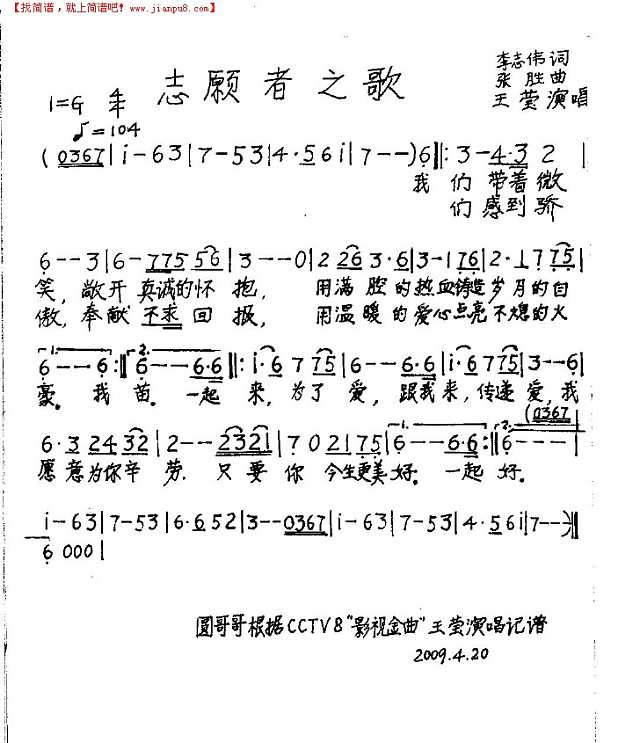 【找简谱，就上简谱吧！www.jianpu8.com】
志愿者之歌
李志伟词
张胜曲
王莹演唱
1=G 4/4
♩=104
(0367|i-63|7-53|4·56i|7--)6||:3-4·32|
我们带着微
们感到骄
6--3|6-77556|3--0|2263·6|3-176|2·1775|
笑，敞开真诚的怀抱，用满腔的热血铸造岁月的自
傲，奉献不求回报，用温暖的爱心点亮不熄的火
1. 2.
6--6:||6--6·6||:i·6775|6--6·6|i·6775|3--6|
豪。我苗。一起来，为了爱，跟我来，传递爱，我
(0367
1. 2.
6·32432|2--2321|702175|6--6·6:||6---|
愿意为你辛劳．只要你今生更美好。一起好。
i-63|7-53|6·652|3--0367|i-63|7-53|4·56i|7--)||
6000|
圆哥哥根据CCTV8"影视金曲"王莹演唱记谱
2009.4.20